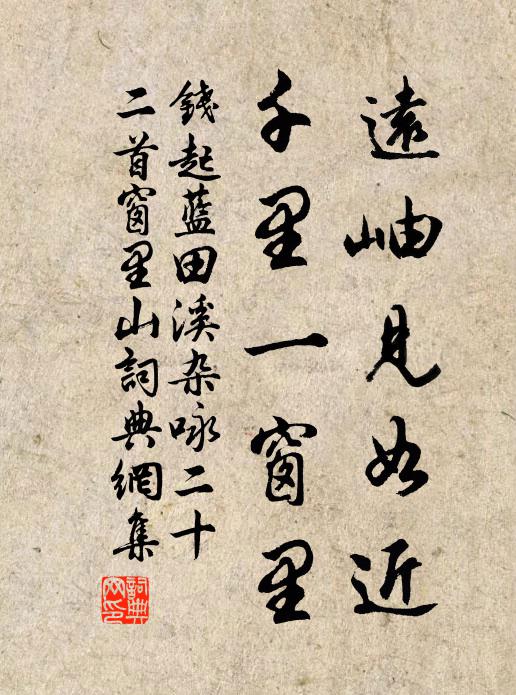 遠岫見如近
千里一窗里
錢起藍田溪杂咏二十
二首窗里山詞典網集
詞典網印